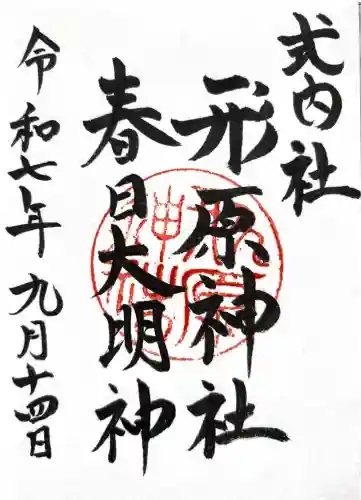 式内社
形原神社
春日大明神
令和七年 九月十四日